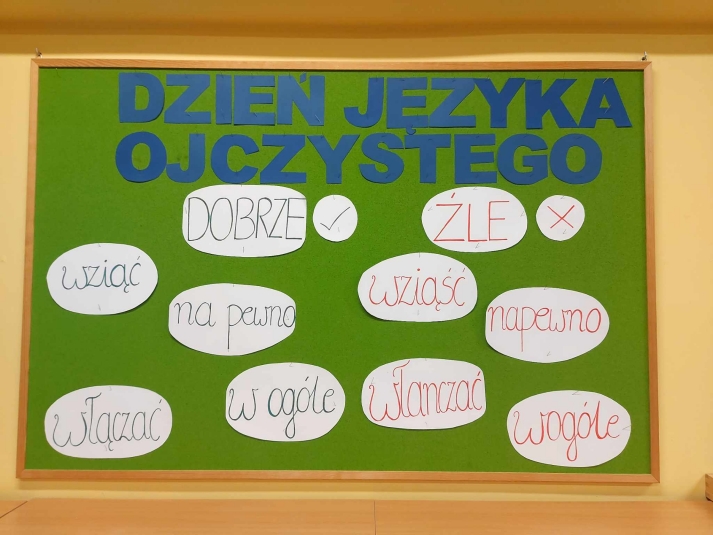 DZIEŃ JĘZYKA
OJCZYSTEGO
DOBRZE ✓
ŹLE ✗
wziąć
na pewno
włączać
w ogóle
wziąść
napewno
włanczać
wogóle